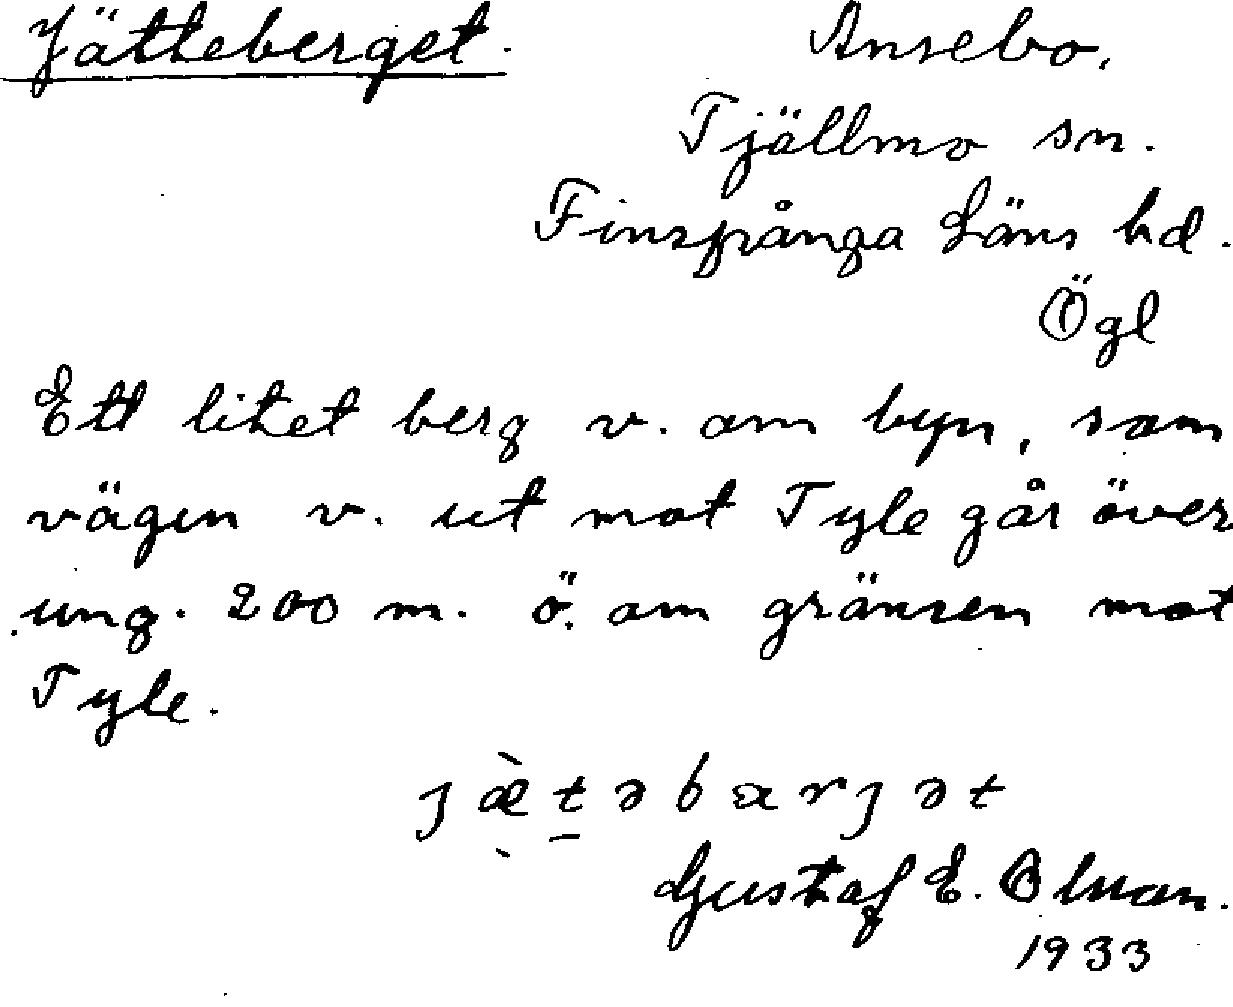 Jätteberget.
Ansebo.
Tjällmo sn.
Finspånga Läns hd.
Ögl
Ett litet berg v. om byn, som
vägen v. ut mot Tyle går över
ung. 200 m. ö. om gränsen mot
Tyle.
ȷæ̀t̠əbarȷət
Gustaf E. Olman.
1933